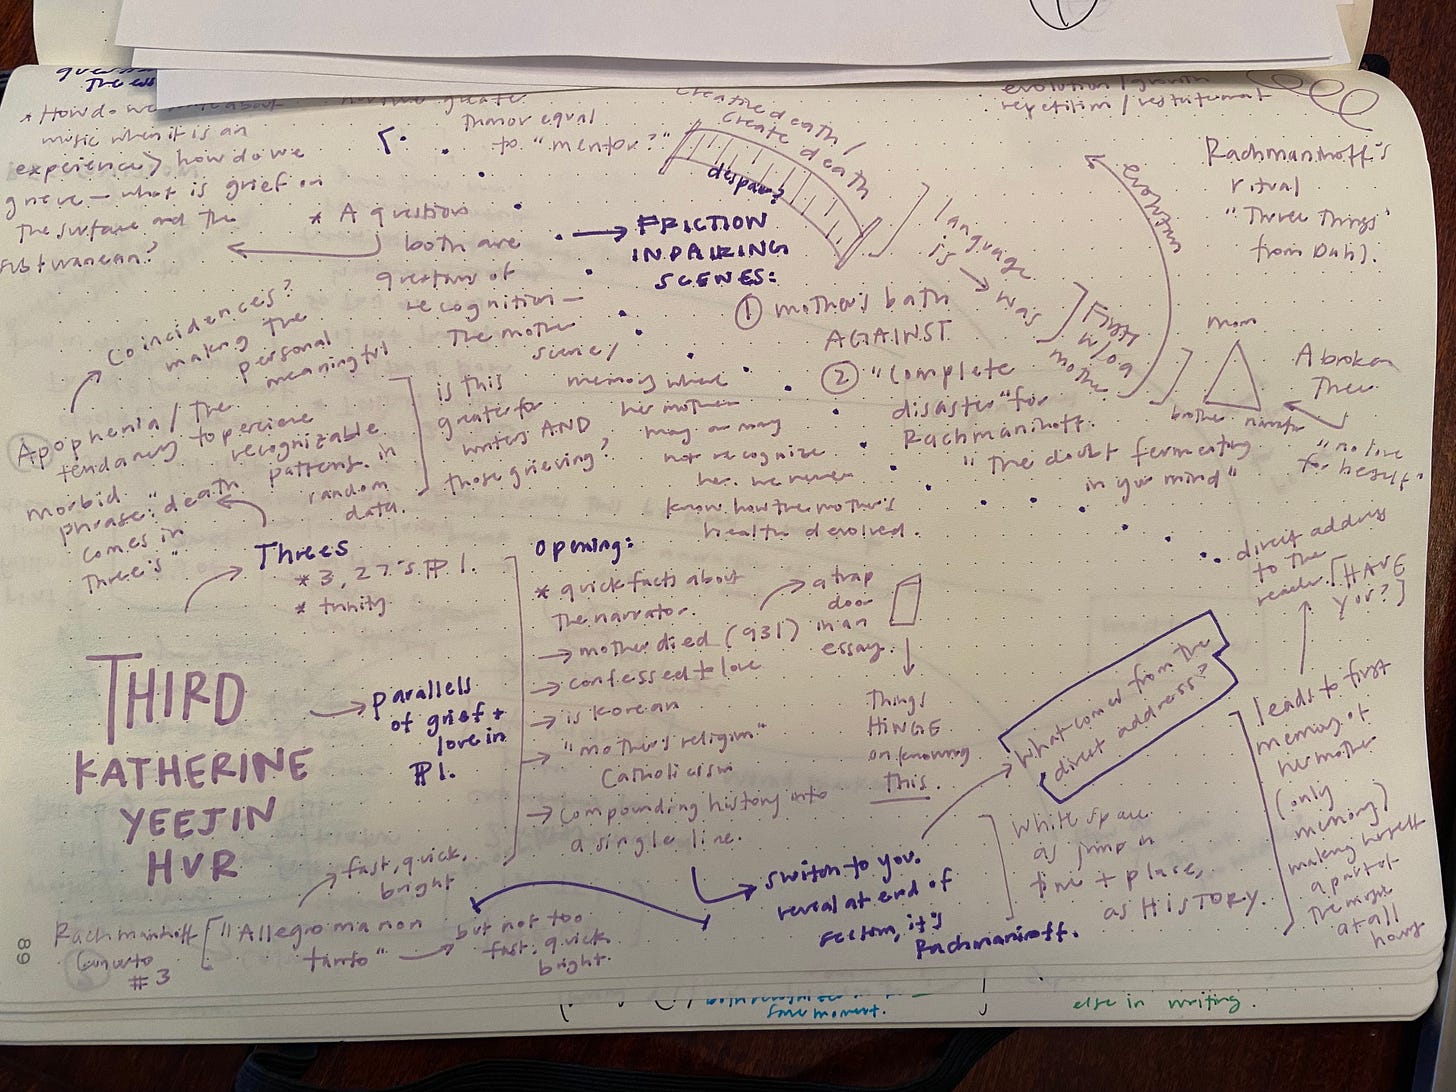 The ess
* How do we write about
music when it is an
experience > how do we
grieve — what is grief on
the surface and the
subterranean?
greater
than or equal
to "mentor?"
* A questions
both are
questions of
recognition —
The mother
scene/
memory where
her mother
may or may
not recognize
her. we never
know how the mother's
health devolved.
creative death/
create death
despair?
→ FRICTION
IN PAIRING
SCENES:
① mother's bath
AGAINST
② "Complete
disaster" for
Rachmaninoff.
"The doubt fermenting
in your mind"
language
is → was
First
w/o a
mother
evolution / growth
repetition / restatement
evolution
Rachmaninoff's
ritual
"Three Things"
from Dahl.
mom
brother narrator
A broken
Three
"no love
for herself"
direct address
to the
reader [HAVE
YOU?]
Coincidences?
making the
personal
meaningful
Apophenia / The
tendency to perceive
recognizable
patterns in
random
data.
is this
greater for
writers AND
those grieving?
morbid
phrase: "death
comes in
Three's"
Threes
* 3, 27's ¶ 1.
* trinity
THIRD
KATHERINE
YEEJIN
HUR
→ parallels
of grief +
love in
¶ 1.
opening:
* quick facts about
the narrator.
→ mother died (931)
→ confessed + love
→ is Korean
→ "mother's religion"
Catholicism
→ compounding history into
a single line.
a trap
door
in an
essay.
Things
HINGE
on knowing
this.
switch to you.
reveal at end of
section, it's
Rachmaninoff.
What comes from the
direct address?
White space
as jump in
time + place,
as HISTORY.
leads to first
memory of
her mother
(only
memory)
making herself
a part of
the music
at all
hours
Rachmaninoff
Concerto
#3
"Allegro ma non
tanto"
fast, quick,
bright
but not too
fast, quick,
bright.
89
same moment.
else in writing.